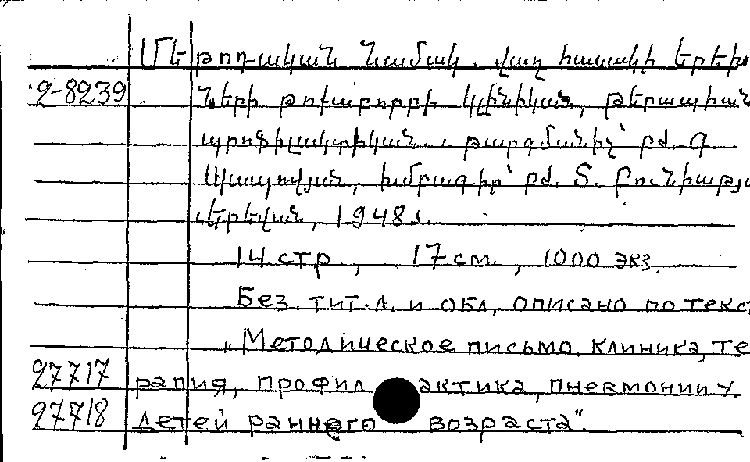 Մեթոդական նամակ. վաղ հասակի երեխա
2-8239 ների թոքաբորբի կլինիկան, թերապիան
պրոֆիլակտիկան. թարգմանիչ՝ բժ. Գ
խմբագիր՝ բժ. Տ. Բունիաթյա
Երեվան, 1948թ.
14 стр., 17 см., 1000 экз.
Без тит. л. и обл, описано по текс
„Методическое письмо. клиника, те
27717 рапия, профилактика, пневмонии у
27718 детей раннего возраста"